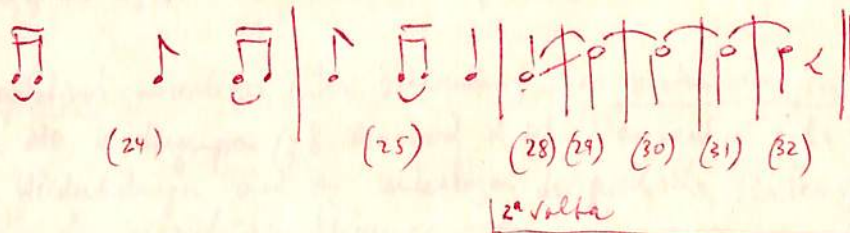 (24) (25) (28) (29) (30) (31) (32)
2ª Volta